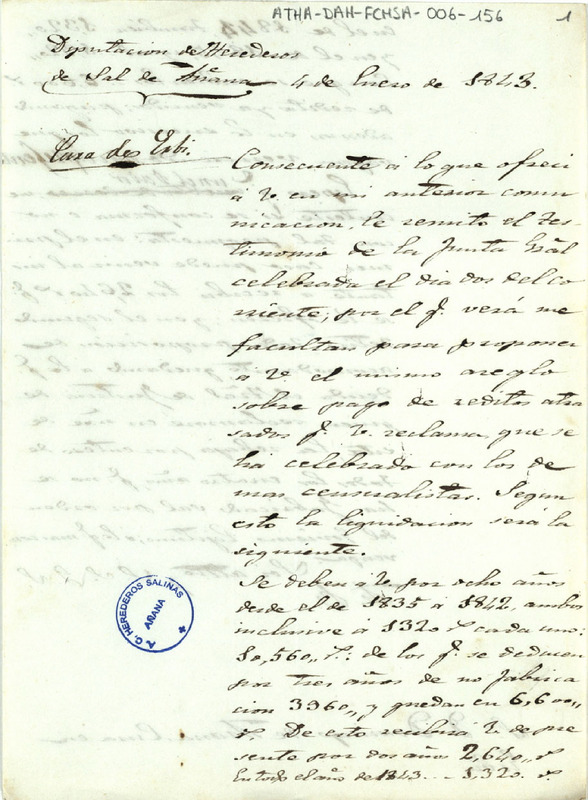 ATHA-DAH-FCHSA-006-156
1
Diputacion de Herederos
de Sal de Añana 4 de Enero de 1843.
Casa de Esbi.
Consecuente a lo que ofreci
a V. en mi anterior comu
nicacion, le remito el tes-
timonio de la Junta Gral
celebrada el dia dos del co
rriente; por el q. verá me
facultan para proponer
a V. el mismo areglo
sobre pago de reditos atra
sados q. V. reclama, que se
ha celebrado con los de
mas censualistas. Segun
esto la liquidacion será la
siguiente.
Se deben a V. por ocho años
desde el de 1835 á 1842, ambos
inclusive á 1320 r cada uno:
10,560,, r. de los q. se deducen
por tres años de no fabrica
cion 3960,, y quedan en 6,600,,
r. De esto recibira V. de pre
sente por dos años 2,640,, r
En todo el año de 1843 -- 1,320. r
A. C. HEREDEROS SALINAS
AÑANA